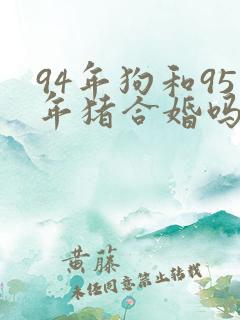 94年狗和95
年猪合婚吗
黄藤
未经同意禁止转载